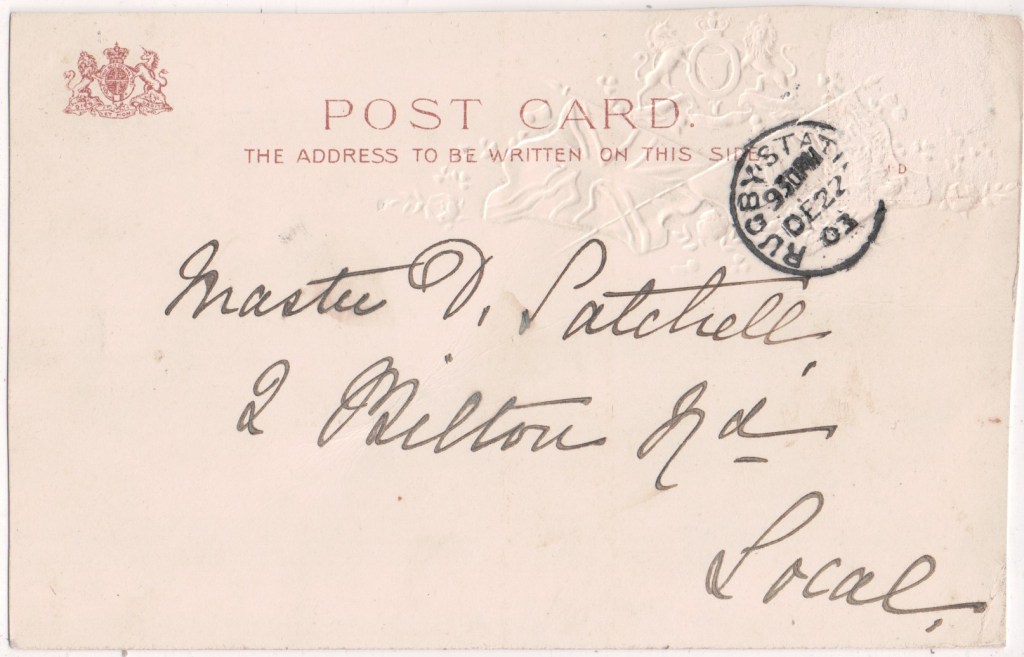 POST CARD.
THE ADDRESS TO BE WRITTEN ON THIS SIDE
RUGBY·STATI
930PM
DE 22
03
Master D. Satchell,
2 Bilton Rd
Local.